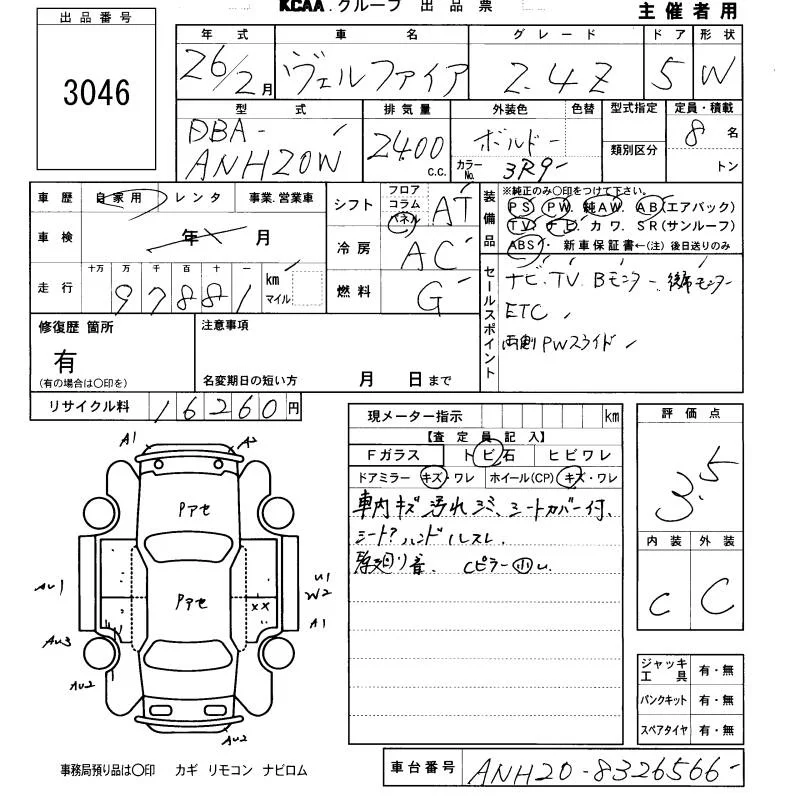 KCAA.グループ 出品票
主催者用
出品番号
3046
年式 車名 グレード ドア 形状
26/2月 ヴェルファイア 2.4Z 5 W
型式 排気量 外装色 色替 型式指定 定員・積載
DBA-
ANH20W
2400 c.c.
ボルドー
カラーNo. 3R9
類別区分
8名
トン
車歴 自家用 レンタ 事業.営業車
車検 年 月
走行 十万 万 千 百 十 一
97881 km マイル
シフト フロア コラム パネル AT
冷房 AC
燃料 G
装備品
※純正のみ〇印をつけて下さい。
PS PW. 純AW. AB(エアバック)
TV. ナビ. カワ. SR(サンルーフ)
ABS・新車保証書←(注)後日送りのみ
セールスポイント
ナビ. TV. Bモニター
ETC
両側PWスライド
修復歴 箇所
有
(有の場合は〇印を)
注意事項
名変期日の短い方 月 日まで
リサイクル料 16260円
現メーター指示 km
【査定員記入】
Fガラス トビ石 ヒビワレ
ドアミラー キズ・ワレ ホイール(CP) キズ・ワレ
車内キズ汚れシミ、シートカバー付、
シート ハンドルスレ
音、Cピラー小
評価点
3.5
内装 外装
C C
A1 A2
Pアセ
Pアセ
AU1
U1
W2
XX
A1
AU3
AU2
AU2
ジャッキ工具 有・無
パンクキット 有・無
スペアタイヤ 有・無
事務局預り品は〇印 カギ リモコン ナビロム
車台番号 ANH20-8326566